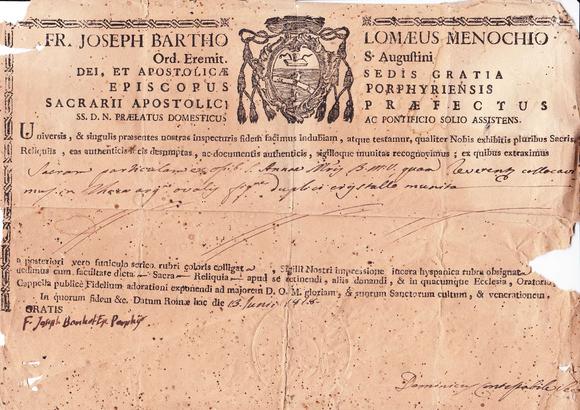 FR. JOSEPH BARTHO LOMÆUS MENOCHIO
Ord. Eremit. S. Augustini
DEI, ET APOSTOLICÆ SEDIS GRATIA
EPISCOPUS PORPHYRIENSIS
SACRARII APOSTOLICI PRÆFECTUS
SS. D. N. PRÆLATUS DOMESTICUS AC PONTIFICIO SOLIO ASSISTENS.
Universis, & singulis præsentes nostras inspecturis fidem facimus indubiam, atque testamur, qualiter Nobis exhibitis pluribus Sacris
Reliquiis, eas authenticis ex desumptas, ac documentis authenticis, sigillisque munitas recognovimus; ex quibus extraximus
Sacram particulam ex Annæ quam Reverenter collocavi
mus in theca ovalis duplici crystallo munita
a posteriori vero funiculo serico rubri coloris colligat , Sigilli Nostri impressione incera hyspanica rubra obsignat
dedimus cum facultate dicta Sacra Reliquia apud se retinendi, aliis donandi, & in quacumque Ecclesia, Oratorio
Cappella publicè Fidelium adorationi exponendi ad majorem D. O. M. gloriam, & suorum Sanctorum cultum, & venerationem,
In quorum fidem &c. Datum Romæ hac die 13 Junii
GRATIS
F. Joseph Barthol Ep. Porphyr
Dominicus